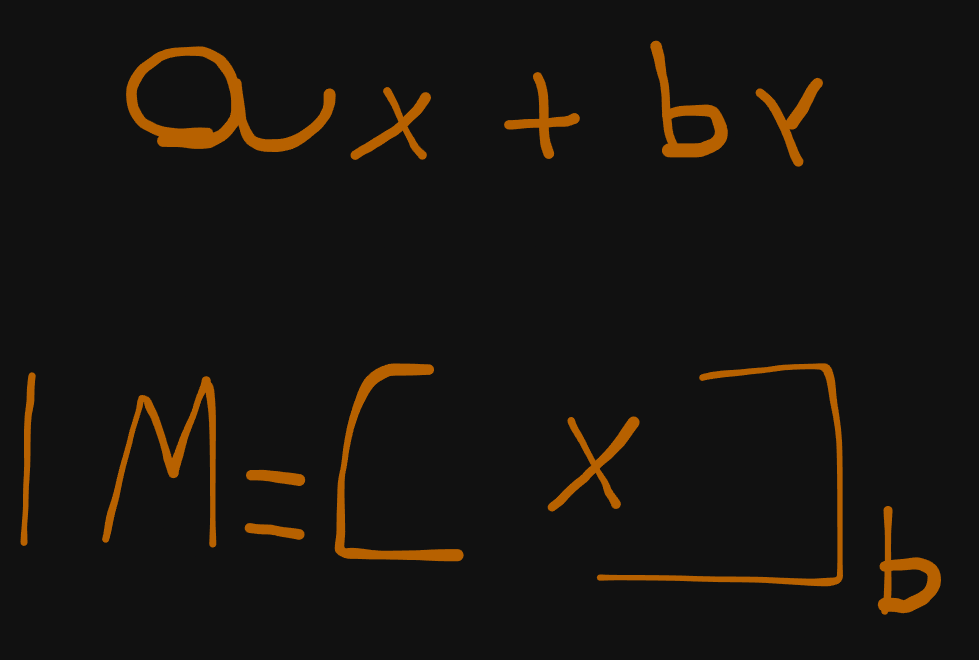 ax + by
| M = [ x ] b